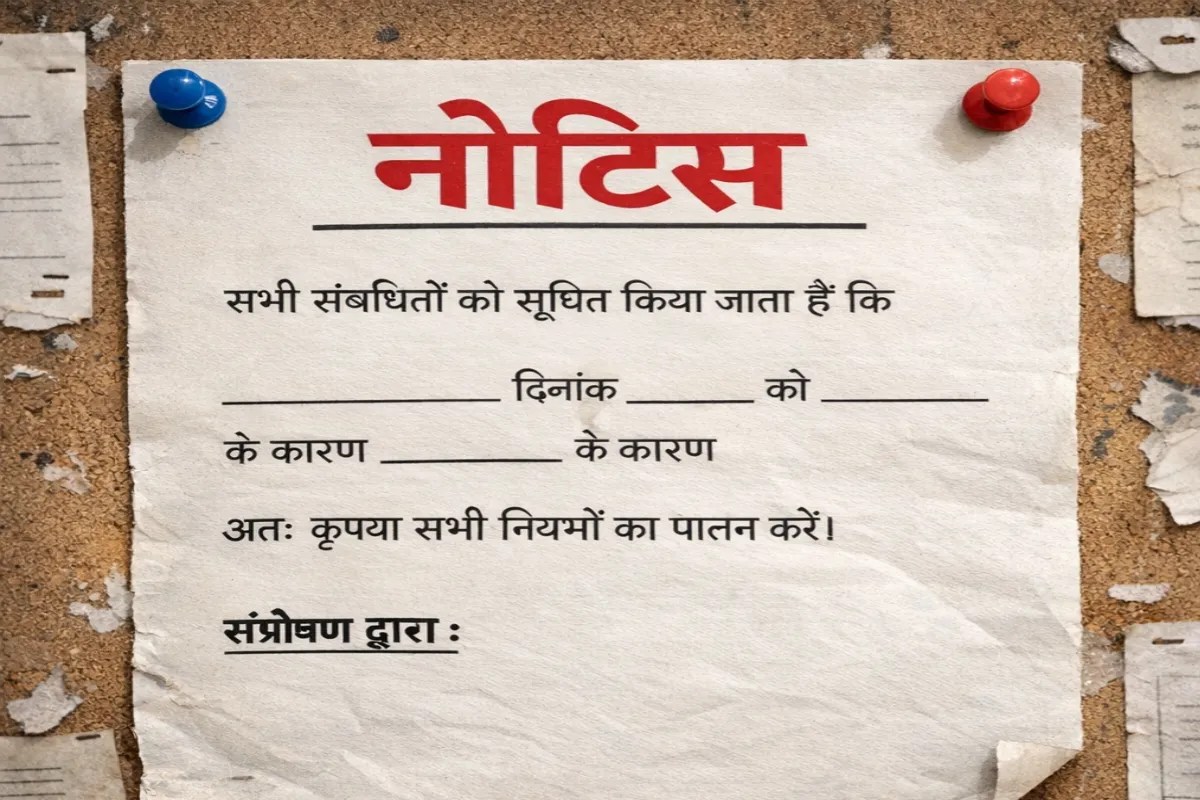 नोटिस
सभी संबधितों को सूघित किया जाता हैं कि
____________________ दिनांक _________ को ____________
के कारण _____________ के कारण
अतः कृपया सभी नियमों का पातन करें!
संप्रोषण द्वारा :